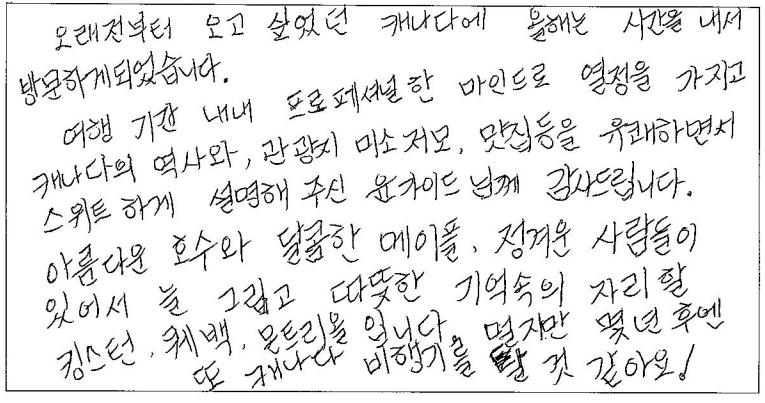 오래전부터 오고 싶었던 캐나다에 올해는 시간을 내서
방문하게되었습니다.
여행 기간 내내 프로페셔널한 마인드로 열정을 가지고
캐나다의 역사와, 관광지 미소저모, 맛집등을 유쾌하면서
스위트하게 설명해 주신 윤카이드님께 감사드립니다.
아름다운 호수와 달콤한 메이플, 정겨운 사람들이
있어서 늘 그립고 따뜻한 기억속의 자리할
킹스턴, 퀘백, 몬트리올 입니다. 멀지만 몇년후엔
또 캐나다 비행기를 탈 것 같아요!